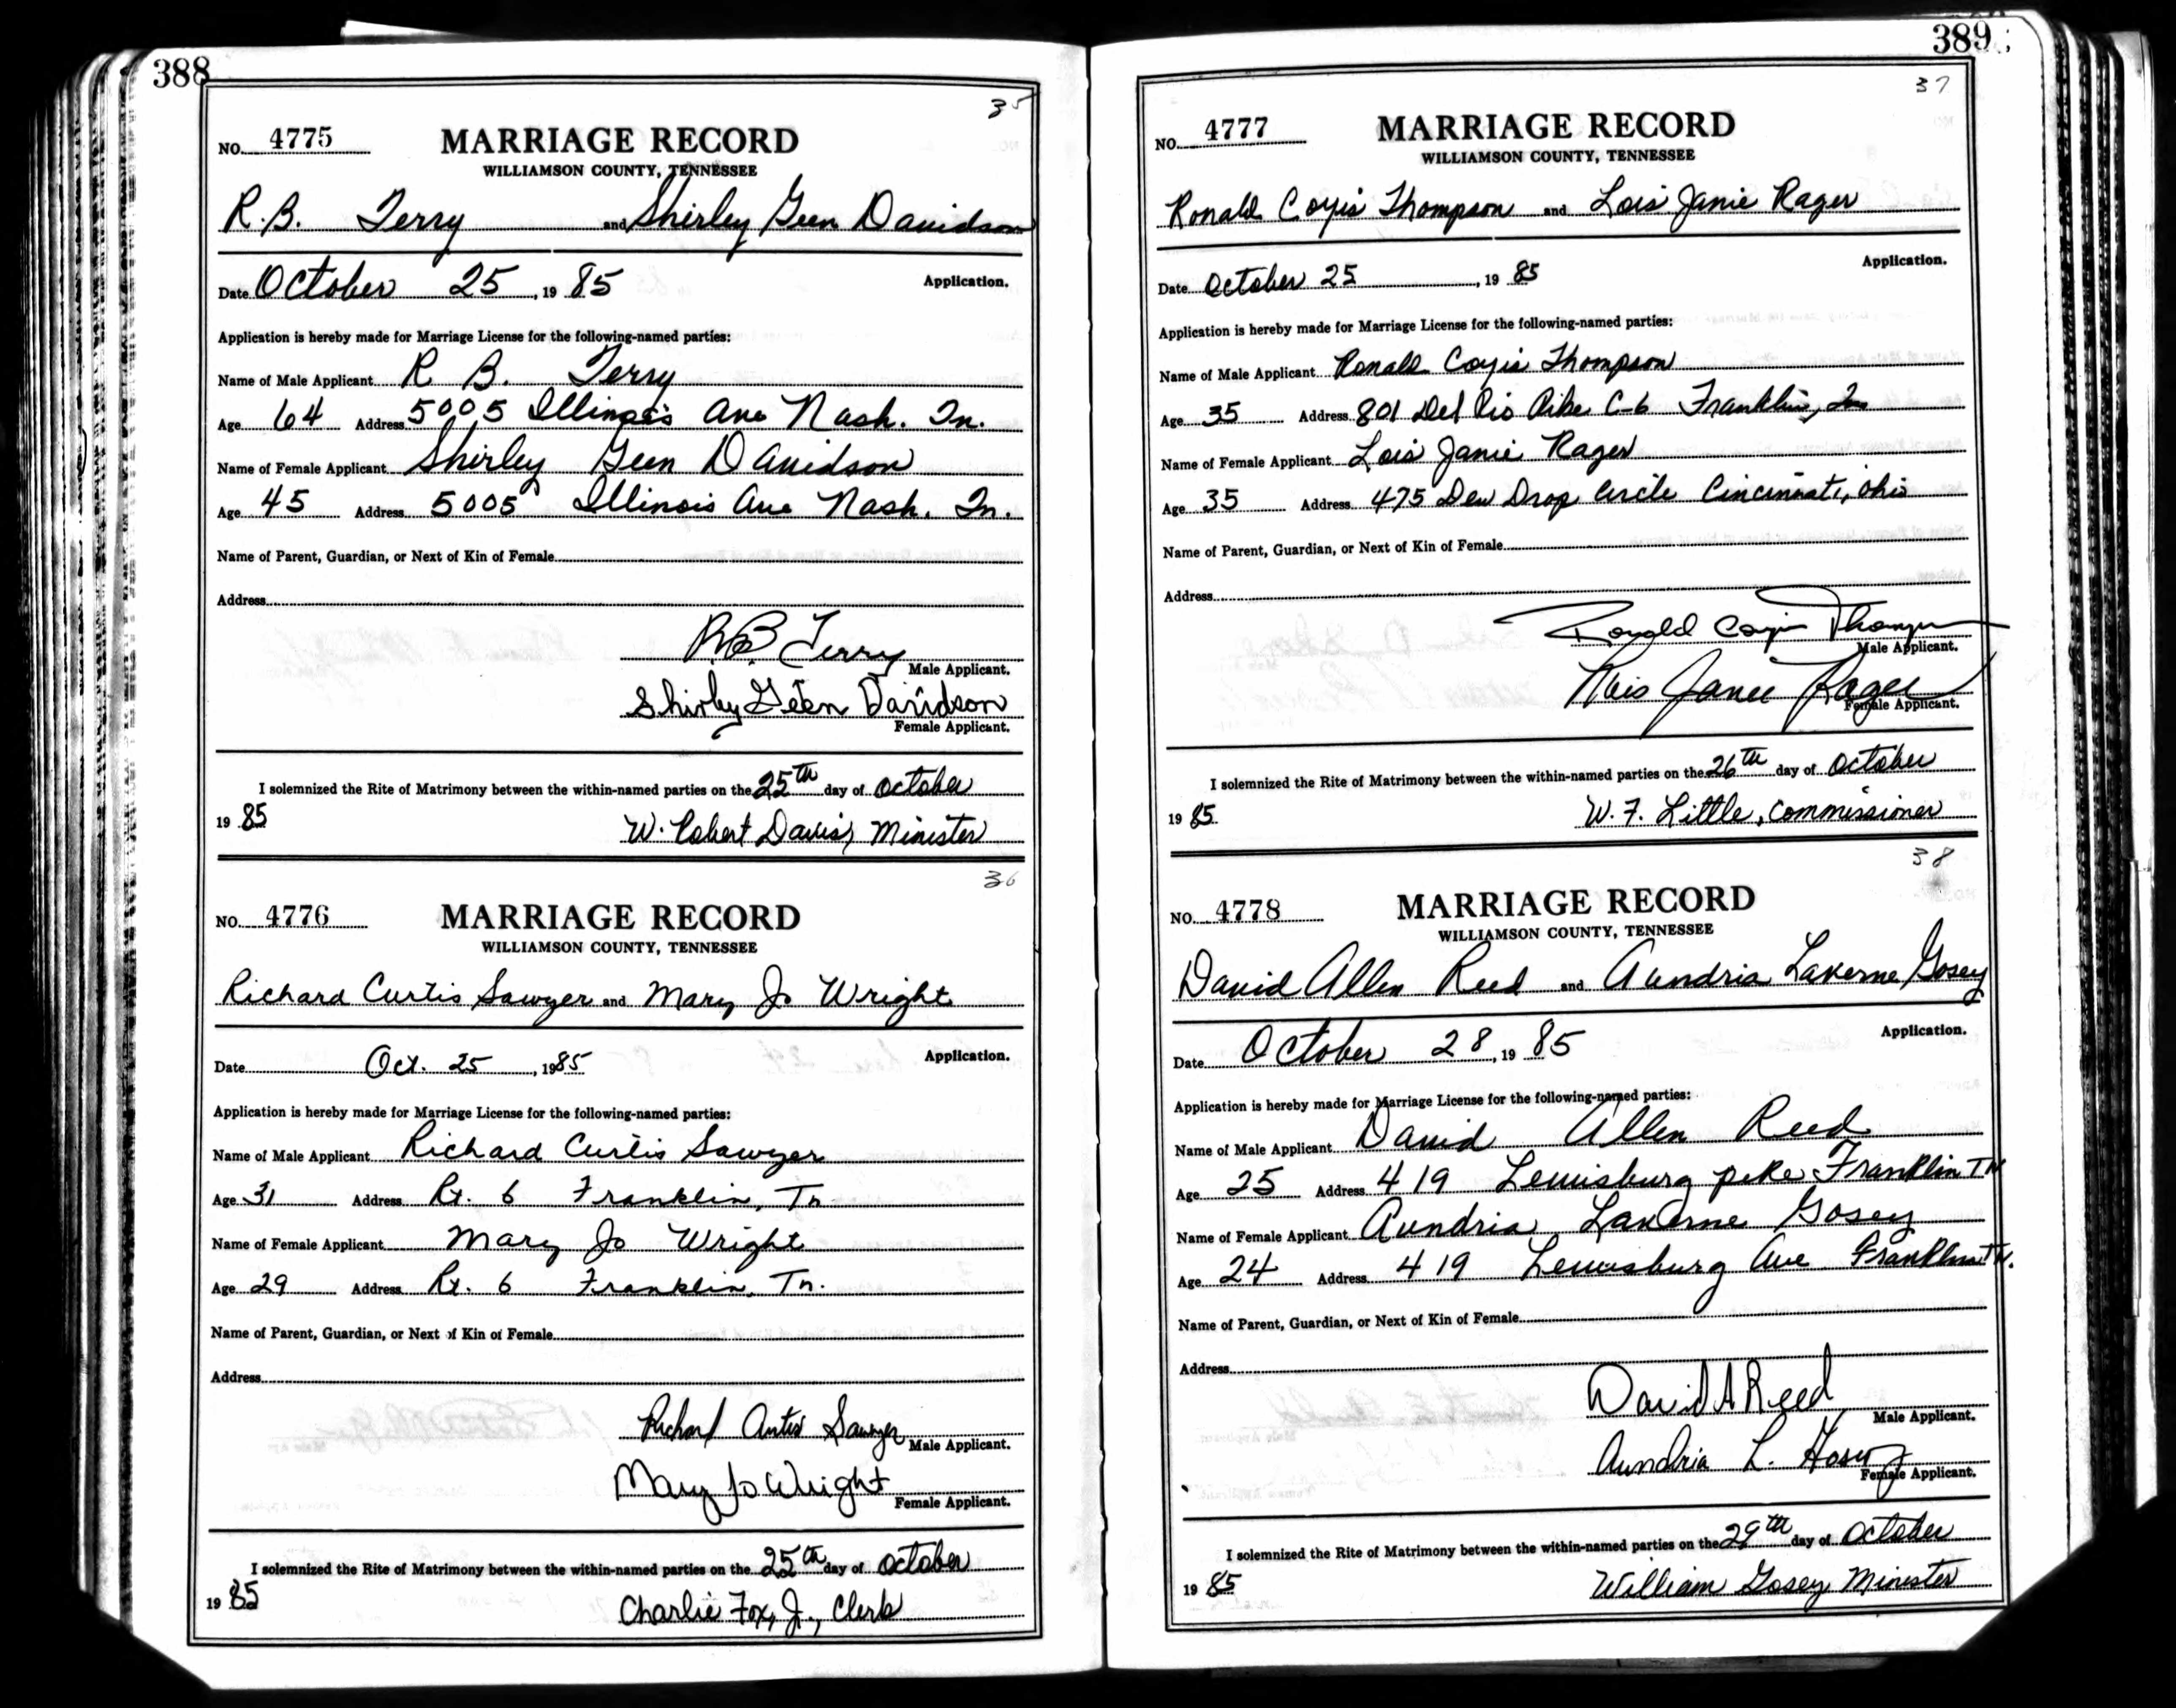 388
35
NO. 4775 MARRIAGE RECORD
WILLIAMSON COUNTY, TENNESSEE
R.B. Terry and Shirley Geen Davidson
Date October 25, 1985 Application.
Application is hereby made for Marriage License for the following-named parties:
Name of Male Applicant R B. Terry
Age 64 Address 5005 Illinois Ave Nash. Tn.
Name of Female Applicant Shirley Geen Davidson
Age 45 Address 5005 Illinois Ave Nash. Tn.
Name of Parent, Guardian, or Next of Kin of Female
Address
R.B. Terry
Male Applicant.
Shirley Geen Davidson
Female Applicant.
I solemnized the Rite of Matrimony between the within-named parties on the 25th day of October
1985 W. Robert Davis, Minister
36
NO. 4776 MARRIAGE RECORD
WILLIAMSON COUNTY, TENNESSEE
Richard Curtis Sawyer and Mary Jo Wright
Date Oct. 25, 1985 Application.
Application is hereby made for Marriage License for the following-named parties:
Name of Male Applicant Richard Curtis Sawyer
Age 31 Address Rt. 6 Franklin, Tn
Name of Female Applicant Mary Jo Wright
Age 29 Address Rt. 6 Franklin, Tn.
Name of Parent, Guardian, or Next of Kin of Female
Address
Richard Curtis Sawyer
Male Applicant.
Mary Jo Wright
Female Applicant.
I solemnized the Rite of Matrimony between the within-named parties on the 25th day of October
1985 Charlie Fox, Jr., Clerk
389
37
NO. 4777 MARRIAGE RECORD
WILLIAMSON COUNTY, TENNESSEE
Ronald Coyis Thompson and Lois Janie Rager
Date October 25, 1985 Application.
Application is hereby made for Marriage License for the following-named parties:
Name of Male Applicant Ronald Coyis Thompson
Age 35 Address 801 Del Rio Pike C-6 Franklin, Tn
Name of Female Applicant Lois Janie Rager
Age 35 Address 475 Dew Drop Circle Cincinnati, Ohio
Name of Parent, Guardian, or Next of Kin of Female
Address
Ronald Thompson
Male Applicant.
Lois Janie Rager
Female Applicant.
I solemnized the Rite of Matrimony between the within-named parties on the 26th day of October
1985 W. F. Little, Commissioner
38
NO. 4778 MARRIAGE RECORD
WILLIAMSON COUNTY, TENNESSEE
David Allen Reed and Aundria Laverne Gosey
Date October 28, 1985 Application.
Application is hereby made for Marriage License for the following-named parties:
Name of Male Applicant David Allen Reed
Age 25 Address 419 Lewisburg pike Franklin TN
Name of Female Applicant Aundria Laverne Gosey
Age 24 Address 419 Lewisburg Ave Franklin TN.
Name of Parent, Guardian, or Next of Kin of Female
Address
David A Reed
Male Applicant.
Aundria L. Gosey
Female Applicant.
I solemnized the Rite of Matrimony between the within-named parties on the 29th day of October
1985 William Gosey Minister